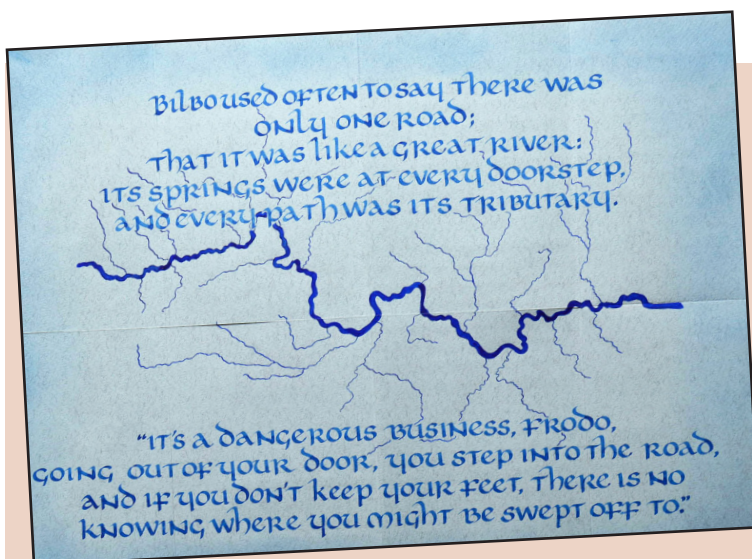 Bilbo used often to say there was
only one road;
that it was like a great river:
its springs were at every doorstep,
and every path was its tributary.
"It's a dangerous business, Frodo,
going out of your door, you step into the road,
and if you don't keep your feet, there is no
knowing where you might be swept off to."